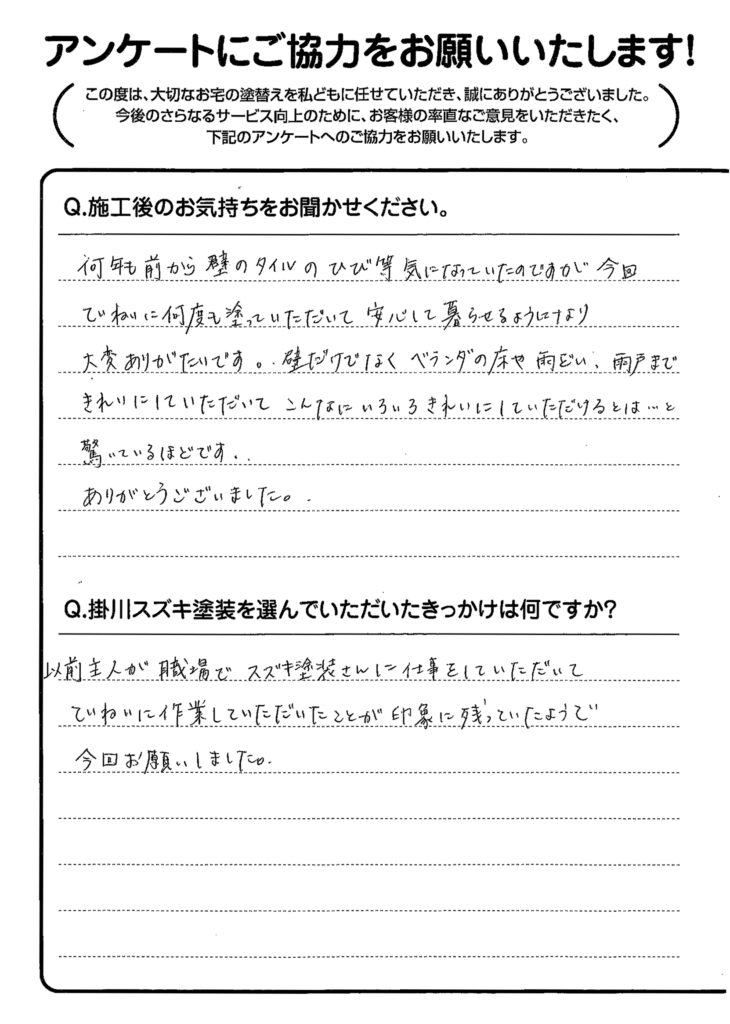 アンケートにご協力をお願いいたします!
この度は、大切なお宅の塗替えを私どもに任せていただき、誠にありがとうございました。
今後のさらなるサービス向上のために、お客様の率直なご意見をいただきたく、
下記のアンケートへのご協力をお願いいたします。
Q.施工後のお気持ちをお聞かせください。
何年も前から壁のタイルのひび等気になっていたのですが今回
ていねいに何度も塗っていただいて安心して暮らせるようになり
大変ありがたいです。壁だけでなくベランダの床や雨どい、雨戸まで
きれいにしていただいてこんなにいろいろきれいにしていただけるとは…と
驚いているほどです。
ありがとうございました。
Q.掛川スズキ塗装を選んでいただいたきっかけは何ですか?
以前主人が職場でスズキ塗装さんに仕事をしていただいて
ていねいに作業していただいたことが印象に残っていたようで
今回お願いしました。